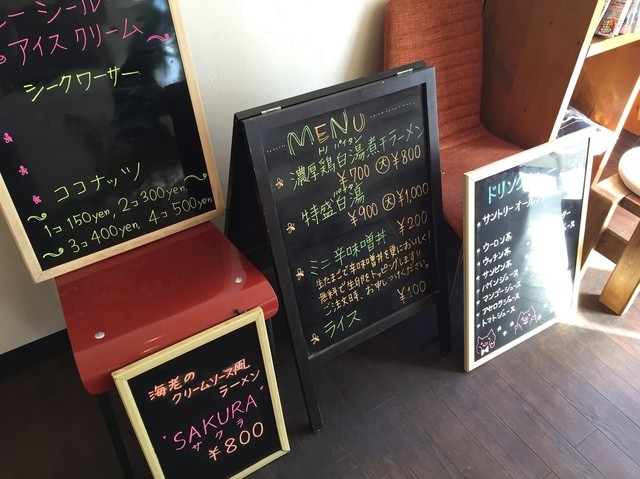 ーシール
アイスクリーム
シークワーサー
ココナッツ
1コ 150yen, 2コ 300yen,
3コ 400yen, 4コ 500yen
海老の
クリームソース風
ラーメン
SAKURA
サクラ
¥800
MENU
トリパイタン
濃厚鶏白湯煮干ラーメン
¥700 大 ¥800
特盛白湯
¥900 大 ¥1,000
ミニ辛味噌丼 ¥200
生たまごで辛味噌丼を更においしく!
無料で生卵をトッピングします!!
ご注文時、お申しつけください。
ライス ¥100
ドリンク
サントリーオール
ウーロン茶
ウッチン茶
サンピン茶
パインジュース
マンゴージュース
アセロラジュース
トマトジュース